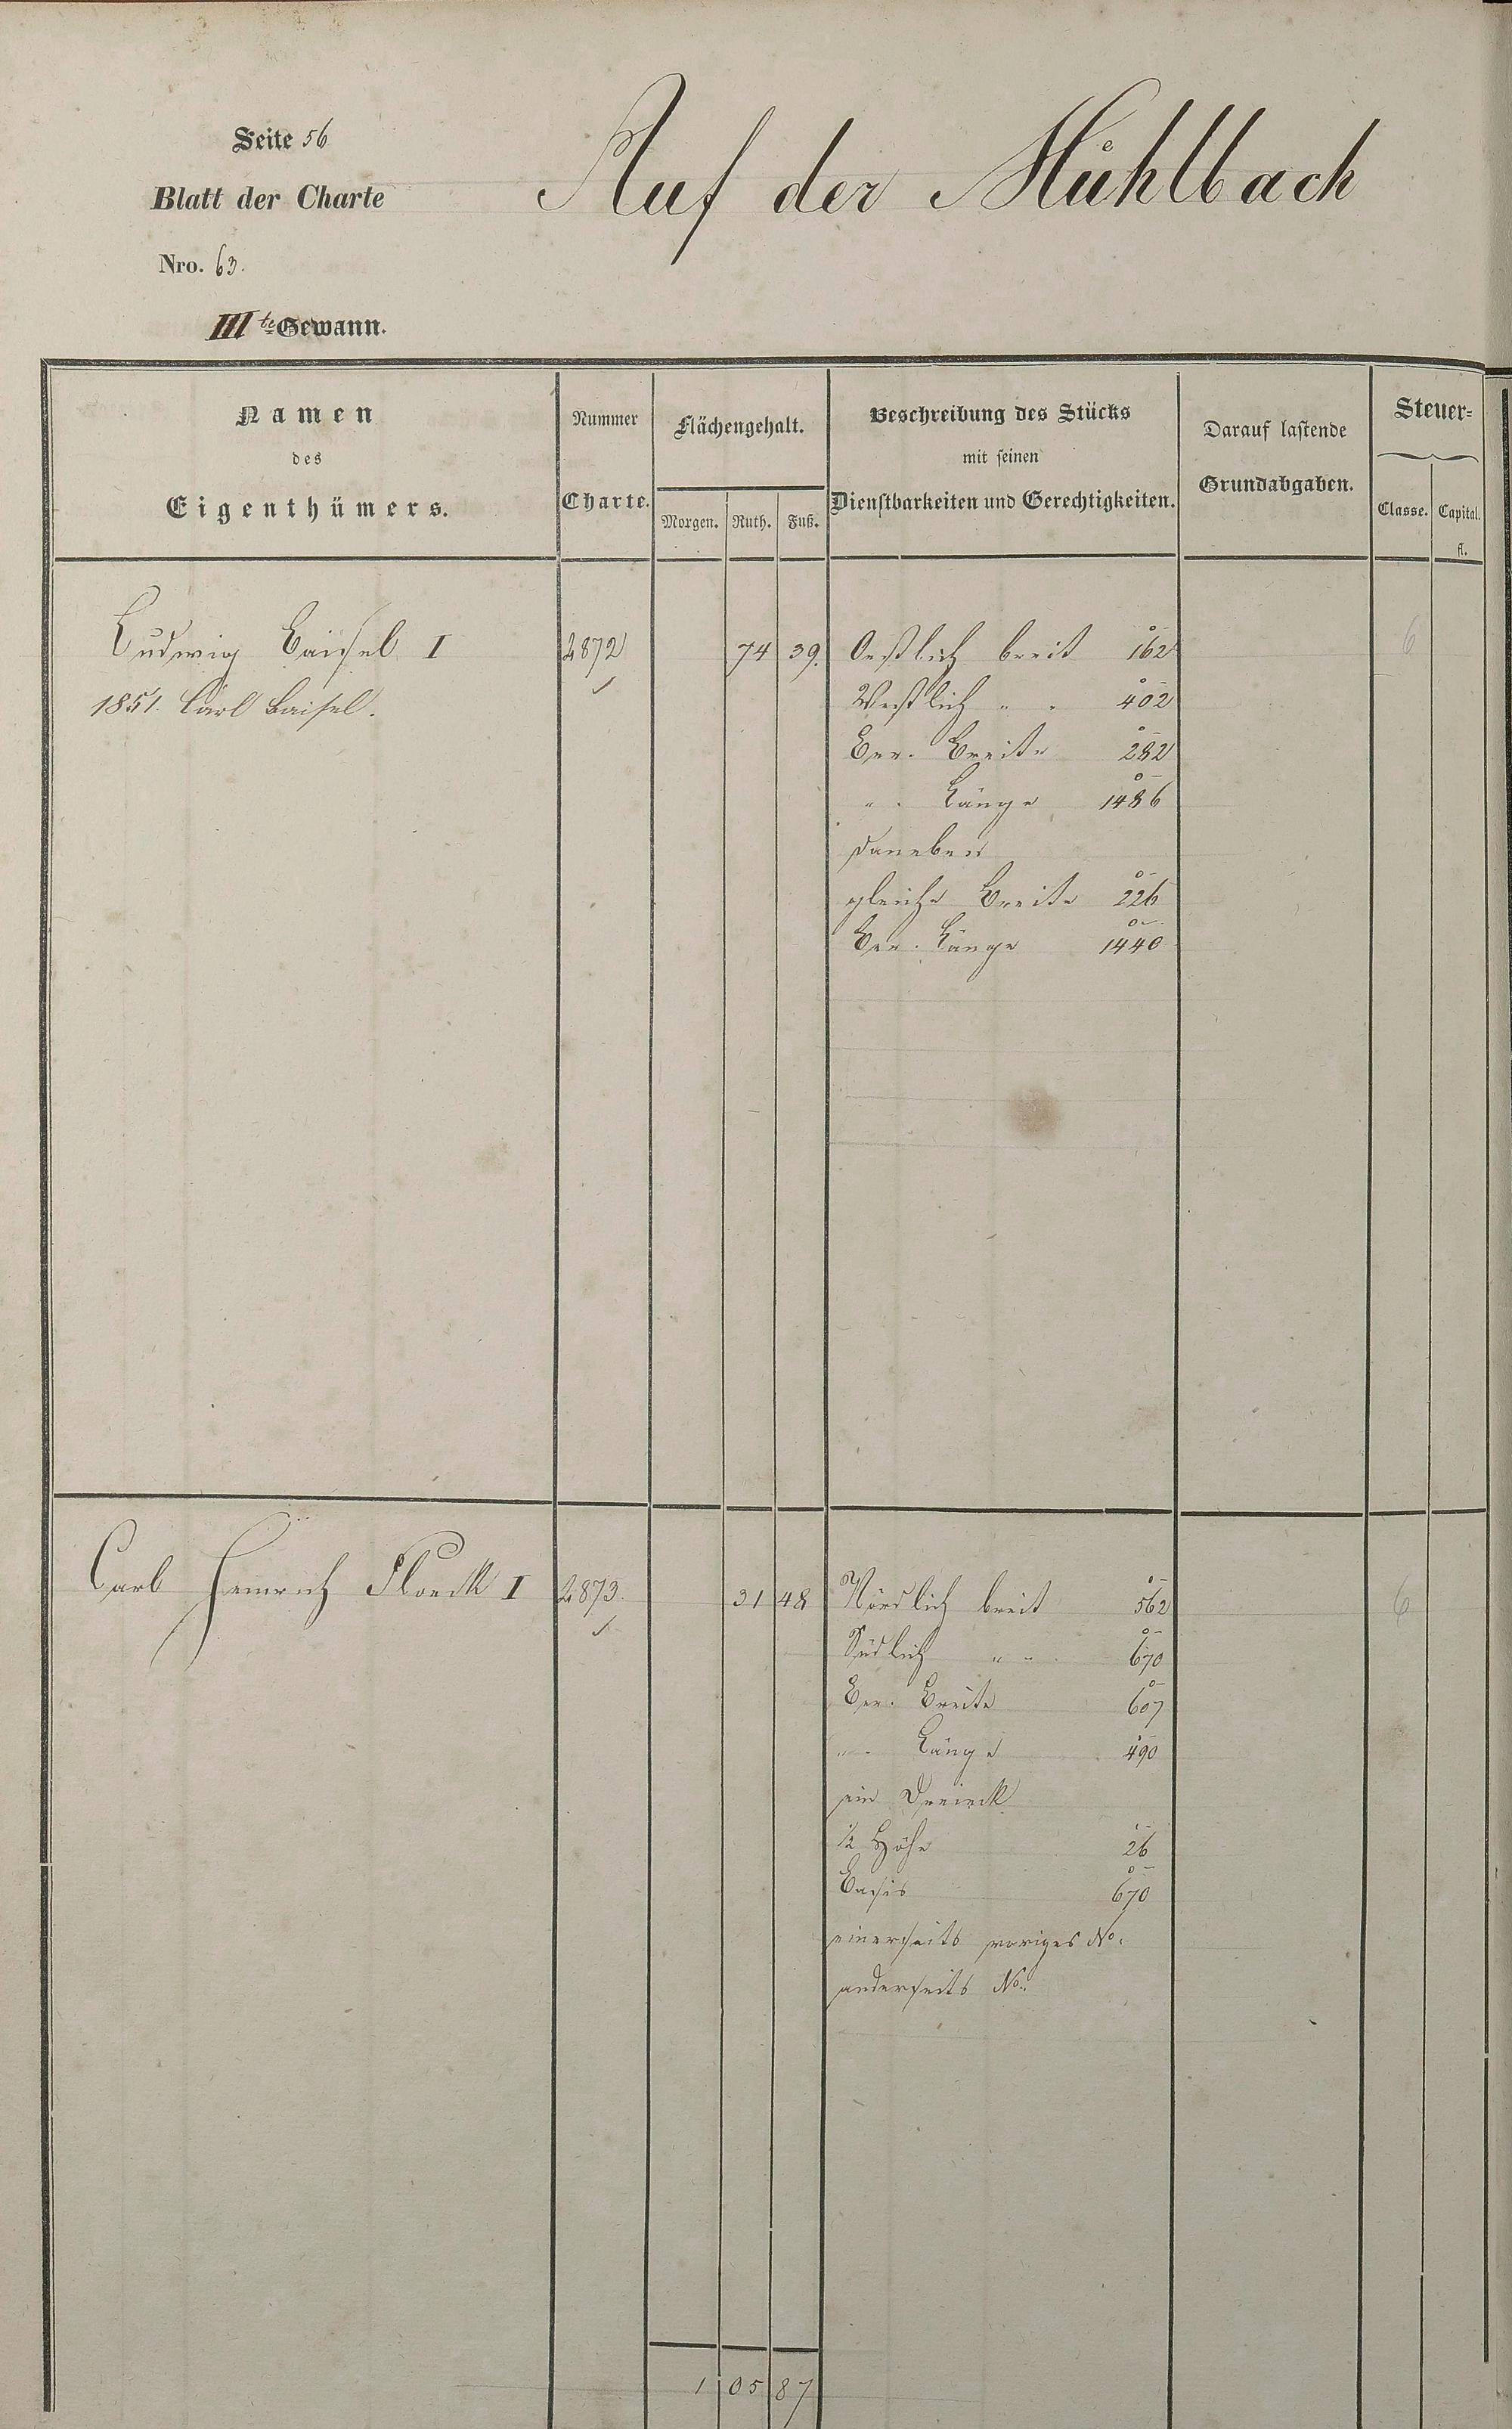 Seite 56
Auf der Mühlbach
Blatt der Charte
Nro. 63.
III te Gewann.
Namen
des
Eigenthümers.
Nummer
Charte.
Flächengehalt.
Morgen. Ruth. Fuß.
Beschreibung des Stücks
mit seinen
Dienstbarkeiten und Gerechtigkeiten.
Darauf lastende
Grundabgaben.
Steuer=
Classe. Capital.
fl.
Ludwig Baisel I 2872 74 39. Oestlich breit 162 6
1851 Carl Baisel. Westlich " " 402
Ber. Breite 282
" . Länge 1486
daneben
gleiche Breite 226
Ber. Länge 1440
Carl Heinrich Floeck I 2873. 31 48 Nördlich breit 562 6
Südlich " " 670
Ber. Breite 607
" . Länge 490
ein Dreieck
½ Höhe 26
Basis 670
einerseits voriges No.
anderseits No.
1 05 87